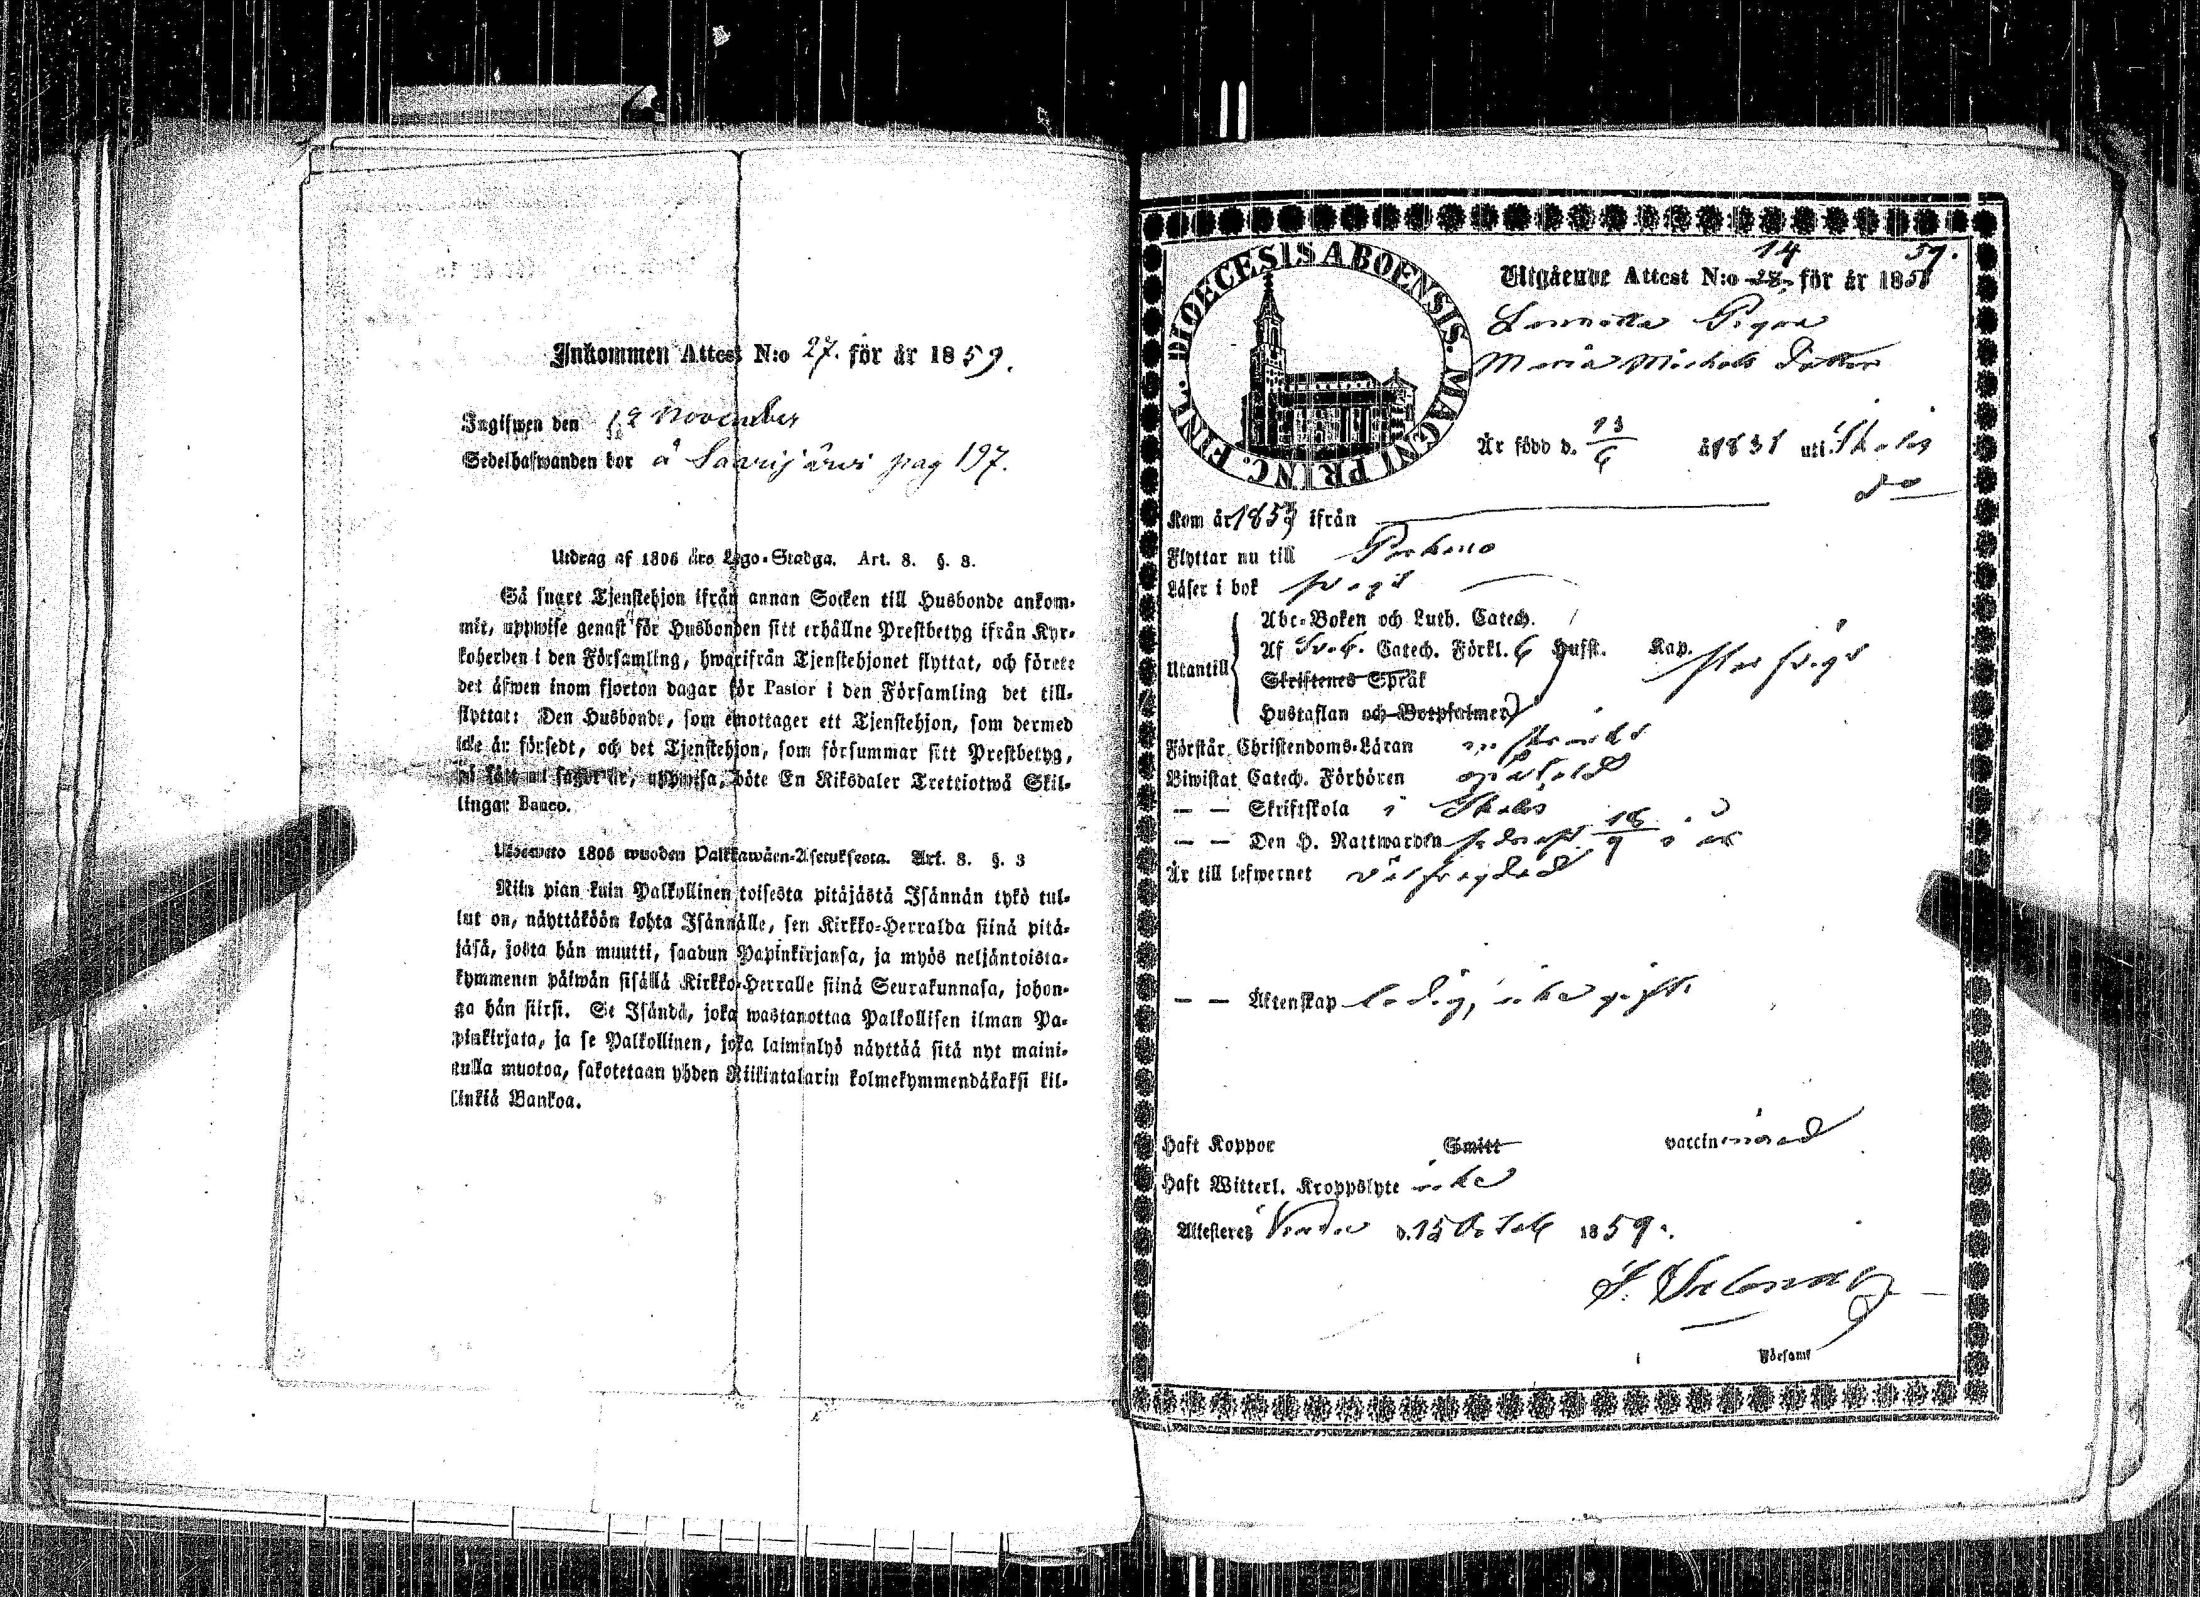 Inkommen Attest N:o 27. för år 1859.
Ingifwen den 12 November
Sedelhafwanden bor å Saarijärvi pag 197.
Utdrag af 1805 års Lego-Stadga. Art. 8. §. 3.
Så snart Tjenstehjon ifrån annan Socken till Husbonde ankom-
mit, uppwise genast för Husbonden sitt erhållne Prestbetyg ifrån Kyr-
koherden i den Församling, hwarifrån Tjenstehjonet flyttat, och förete
det äfwen inom fjorton dagar för Pastor i den Församling det till-
flyttat: Den Husbonde, som emottager ett Tjenstehjon, som dermed
icke är försedt, och det Tjenstehjon, som försummar sitt Prestbetyg,
på sätt nu sagdt är, uppwisa, böte En Riksdaler Trettiotwå Skil-
lingar Banco.
1805 wuoden Palkkawäen-Asetuksesta. Art. 8. §. 3
Niin pian kuin Palkollinen toisesta pitäjästä Isännän tykö tul-
lut on, näyttäköön kohta Isännälle, sen Kirkko-Herralda siinä pitä-
jäsä, josta hän muutti, saadun Papinkirjansa, ja myös neljäntoista-
kymmenen päiwän sisällä Kirkko-Herralle siinä Seurakunnasa, johon-
ga hän siirsi. Se Isändä, joka wastanottaa Palkollisen ilman Pa-
pinkirjata, ja se Palkollinen, joka laiminlyö näyttää sitä nyt maini-
tulla muotoa, sakotetaan yhden Riikintalarin kolmekymmendäkaksi kil-
linkiä Bankoa.
DIOECESIS ABOENSIS. MAGNI PRINC. FINL.
14 59.
Utgående Attest N:o 28. för år 185
Pigan
Maria Michels Dotter
Är född d. 13/6 år 1831 uti
do
Kom år 1859 ifrån
Flyttar nu till
Läser i bok svagt
Utantill
Abc-Boken och Luth. Catech.
Af Sveb. Catech. Förkl. 6 Hufst. Kap.
Skriftenes Språk
Hustaflan och Botpsalmer
Förstår Christendoms-Läran
Biwistat Catech. Förhören
— — Skriftskola i
— — Den H. Nattwarden sednast 18/9 i år
Är till lefwernet välfrägdad
— — Äktenskap ledig, icke gift.
Haft Koppor Smitt vaccinerad
Haft Witterl. Kroppslyte icke
Attesteres d. 15 Octob 1859.
i Förfaml